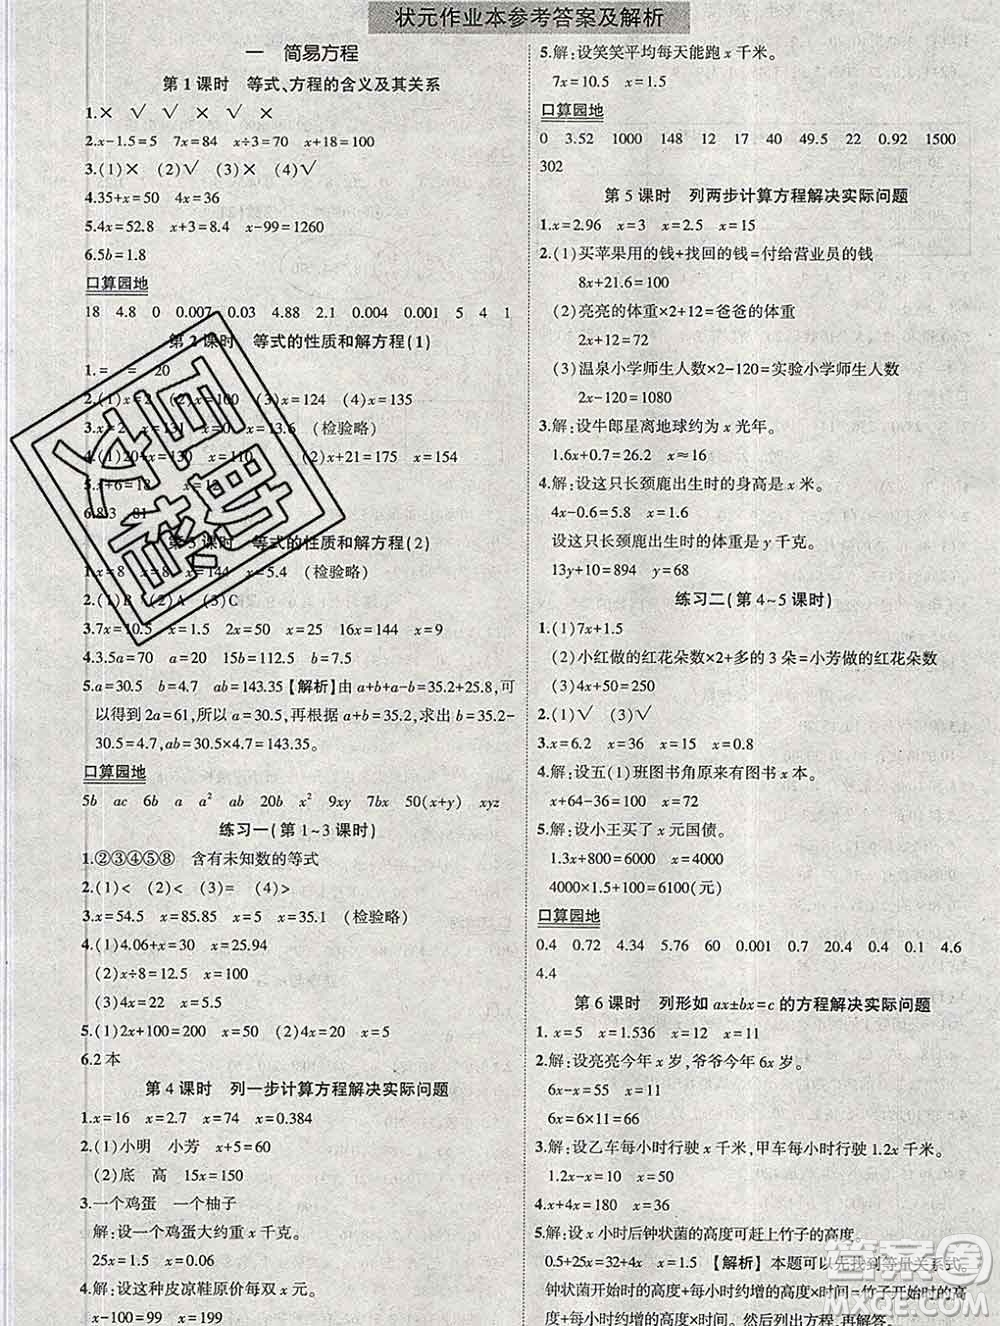 状元作业本参考答案及解析
一 简易方程
第1课时 等式、方程的含义及其关系
1.× √ √ × √ ×
2.x-1.5=5 7x=84 x÷3=70 x+18=100
3.(1)× (2)√ (3)× (4)√
4.35+x=50 4x=36
5.4x=52.8 x+43=78 x-99=1260
6.5b=1.8
口算园地
18 4.8 0 0.007 0.03 4.88 2.1 0.004 0.001 5 4 1
第2课时 等式的性质和解方程(1)
1.= = 20
2.(1)x=92 (2)x=100 (3)x=124 (4)x=135
3.x=2 x=131 x=0 x=13.6 (检验略)
4.(1)20+x=130 x=110 (2)x+21=175 x=154
5.x+6=18 x=12
6.8.3 81
第3课时 等式的性质和解方程(2)
1.x=8 x=8 x= x=9 (检验略)
2.(1)B (2)A (3)C
3.7x=10.5 x=1.5 2x=30 x=15 16x=144 x=9
4.3.5a=70 a=20
5.a=30.5 b=4.7 ab=143.35【解析】由a+b+a-b=35.2+25.8,可
以得到2a=61,所以a=30.5,再根据a+b=35.2,求出b=35.2-
30.5=4.7,ab=30.5×4.7=143.35。
口算园地
5b ac 6b a a² ab 20b x² 9xy 7bx 50(x+y) xyz
练习一(第1~3课时)
1.②③④⑤⑧ 含有未知数的等式
2.(1)< (2)< (3)= (4)>
3.x=54.5 x=85.85 x=5 x=35.1 (检验略)
4.(1)4.06+x=30 x=25.94
(2)x÷8=12.5 x=100
(3)4x=20 x=5
5.(1)2x+100=200 x=50 (2)4x=20 x=5
6.2本
第4课时 列一步计算方程解决实际问题
1.x=16 x=2.7 x=74 x=0.384
2.(1)小明 小芳 x+5=60
(2)底 高 15x=150
3.一个鸡蛋 一个柚子
解:设一个鸡蛋大约重x千克。
25x=1.5 x=0.06
4.解:设这种皮凉鞋原价每双x元。
x-100=99 x=199
5.解:设笑笑平均每天能跑x千米。
7x=10.5 x=1.5
口算园地
0 3.52 1000 148 12 17 40 49.5 22 0.92 1500
302
第5课时 列两步计算方程解决实际问题
1.x=2.96 x=3 x=2.5 x=15
2.(1)买苹果用的钱+找回的钱=付给营业员的钱
8x+21.6=100
(2)亮亮的体重×2+12=爸爸的体重
2x+12=72
(3)温泉小学师生人数×2-120=实验小学师生人数
2x-120=1080
3.解:设牛郎星离地球约为x光年。
1.6x+0.4=26 x=16
4.解:设这只长颈鹿出生时的身高是x米。
4x-0.6=5.8 x=1.6
设这只长颈鹿出生时的体重是y千克。
13y+10=894 y=68
练习二(第4~5课时)
1.(1)7x+1.5
(2)小红做的红花朵数×2+多的3朵=小芳做的红花朵数
(3)4x+50=250
2.(1)√ (2)√
3.x=6.2 x=36 x=15 x=0.8
4.解:设五(1)班图书角原来有图书x本。
x+64-36=100 x=72
5.解:设小王买了x元国债。
1.3x+800=6000 x=4000
4000×1.5+100=6100(元)
口算园地
0.4 0.72 4.34 5.76 60 0.001 0.7 20.4 0.4 0.1 4.6
4.4
第6课时 列形如ax±bx=c的方程解决实际问题
1.x=5 x=1.536 x=12 x=11
2.解:设亮亮今年x岁,爷爷今年6x岁。
6x-x=55 x=11
6x=6×11=66
3.解:设乙车每小时行驶x千米,甲车每小时行驶1.2x千米。
1.2x-x=10 x=50
4.x+4x=180 x=36
5.解:设x小时后钟状菌的高度可赶上竹子的高度。
0.5+25x=32+4x x=1.5【解析】本题可以先找到等量关系式。
钟状菌开始时的高度+每小时约增的高度=竹子开始时的高
度+每小时约增的高度,再解答。
百勤文综
答案圈
MXQE.COM